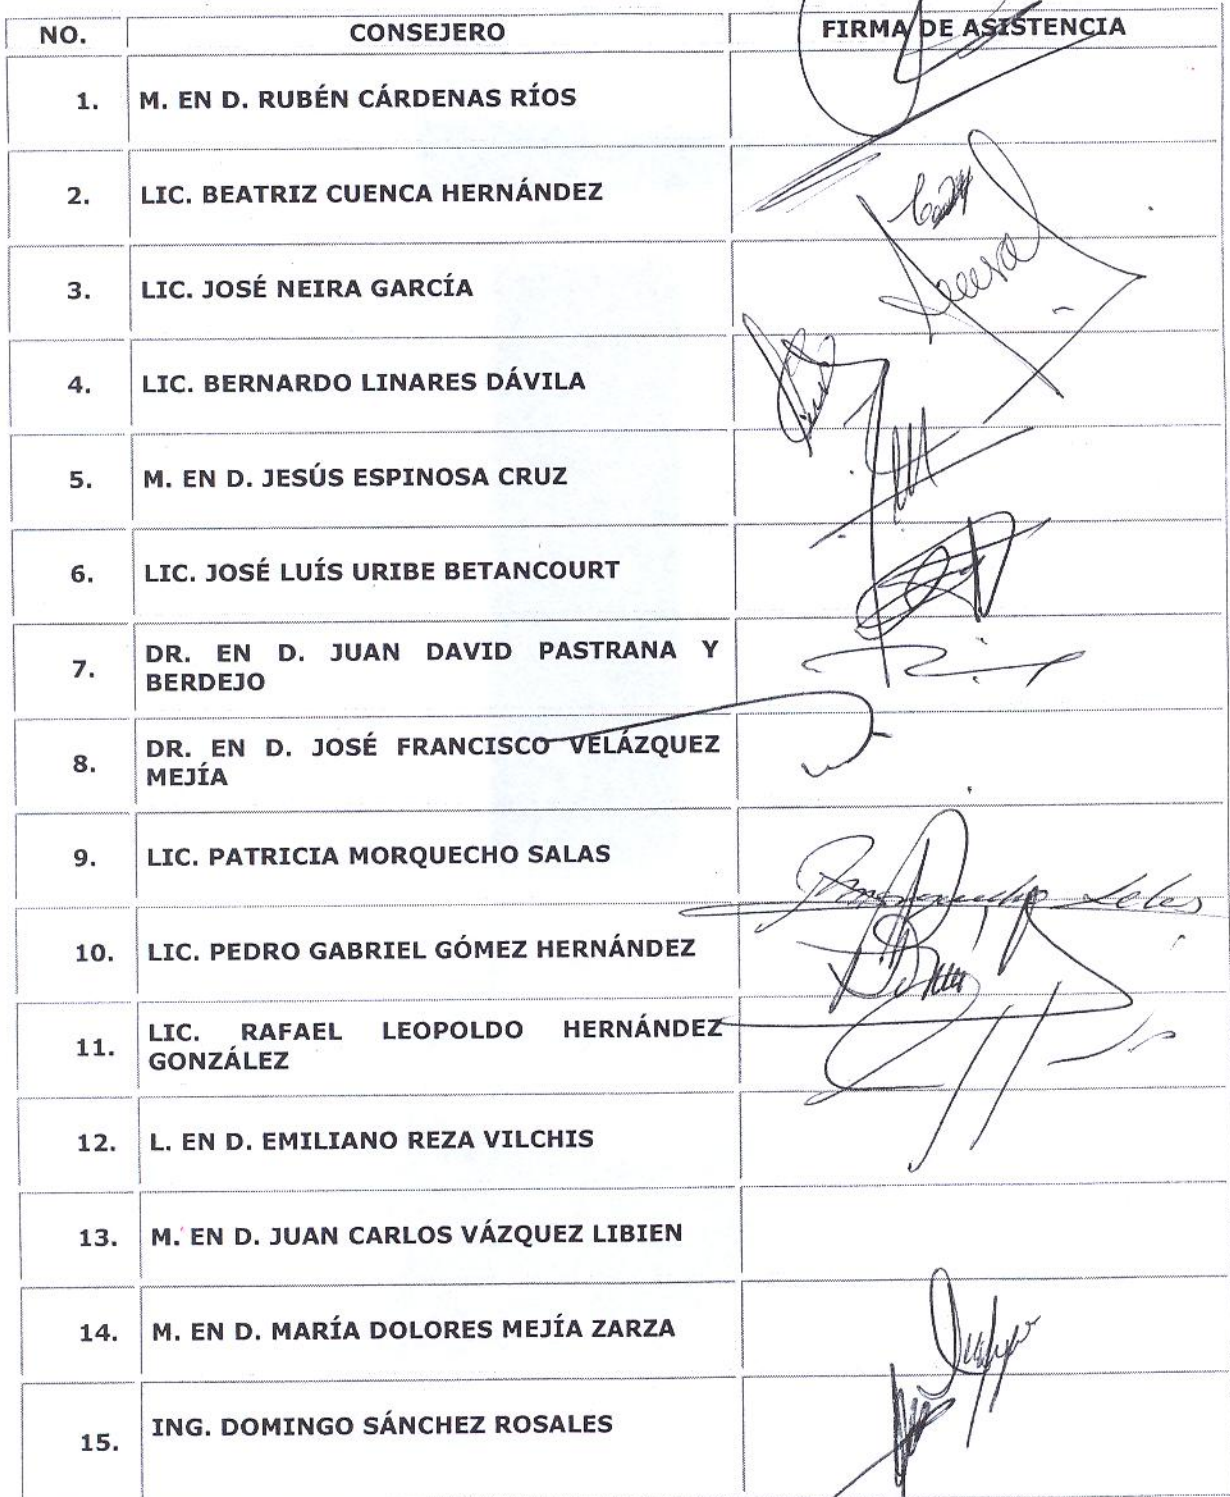 NO. CONSEJERO FIRMA DE ASISTENCIA
1. M. EN D. RUBÉN CÁRDENAS RÍOS
2. LIC. BEATRIZ CUENCA HERNÁNDEZ
3. LIC. JOSÉ NEIRA GARCÍA
4. LIC. BERNARDO LINARES DÁVILA
5. M. EN D. JESÚS ESPINOSA CRUZ
6. LIC. JOSÉ LUÍS URIBE BETANCOURT
7. DR. EN D. JUAN DAVID PASTRANA Y
BERDEJO
8. DR. EN D. JOSÉ FRANCISCO VELÁZQUEZ
MEJÍA
9. LIC. PATRICIA MORQUECHO SALAS
10. LIC. PEDRO GABRIEL GÓMEZ HERNÁNDEZ
11. LIC. RAFAEL LEOPOLDO HERNÁNDEZ
GONZÁLEZ
12. L. EN D. EMILIANO REZA VILCHIS
13. M. EN D. JUAN CARLOS VÁZQUEZ LIBIEN
14. M. EN D. MARÍA DOLORES MEJÍA ZARZA
15. ING. DOMINGO SÁNCHEZ ROSALES